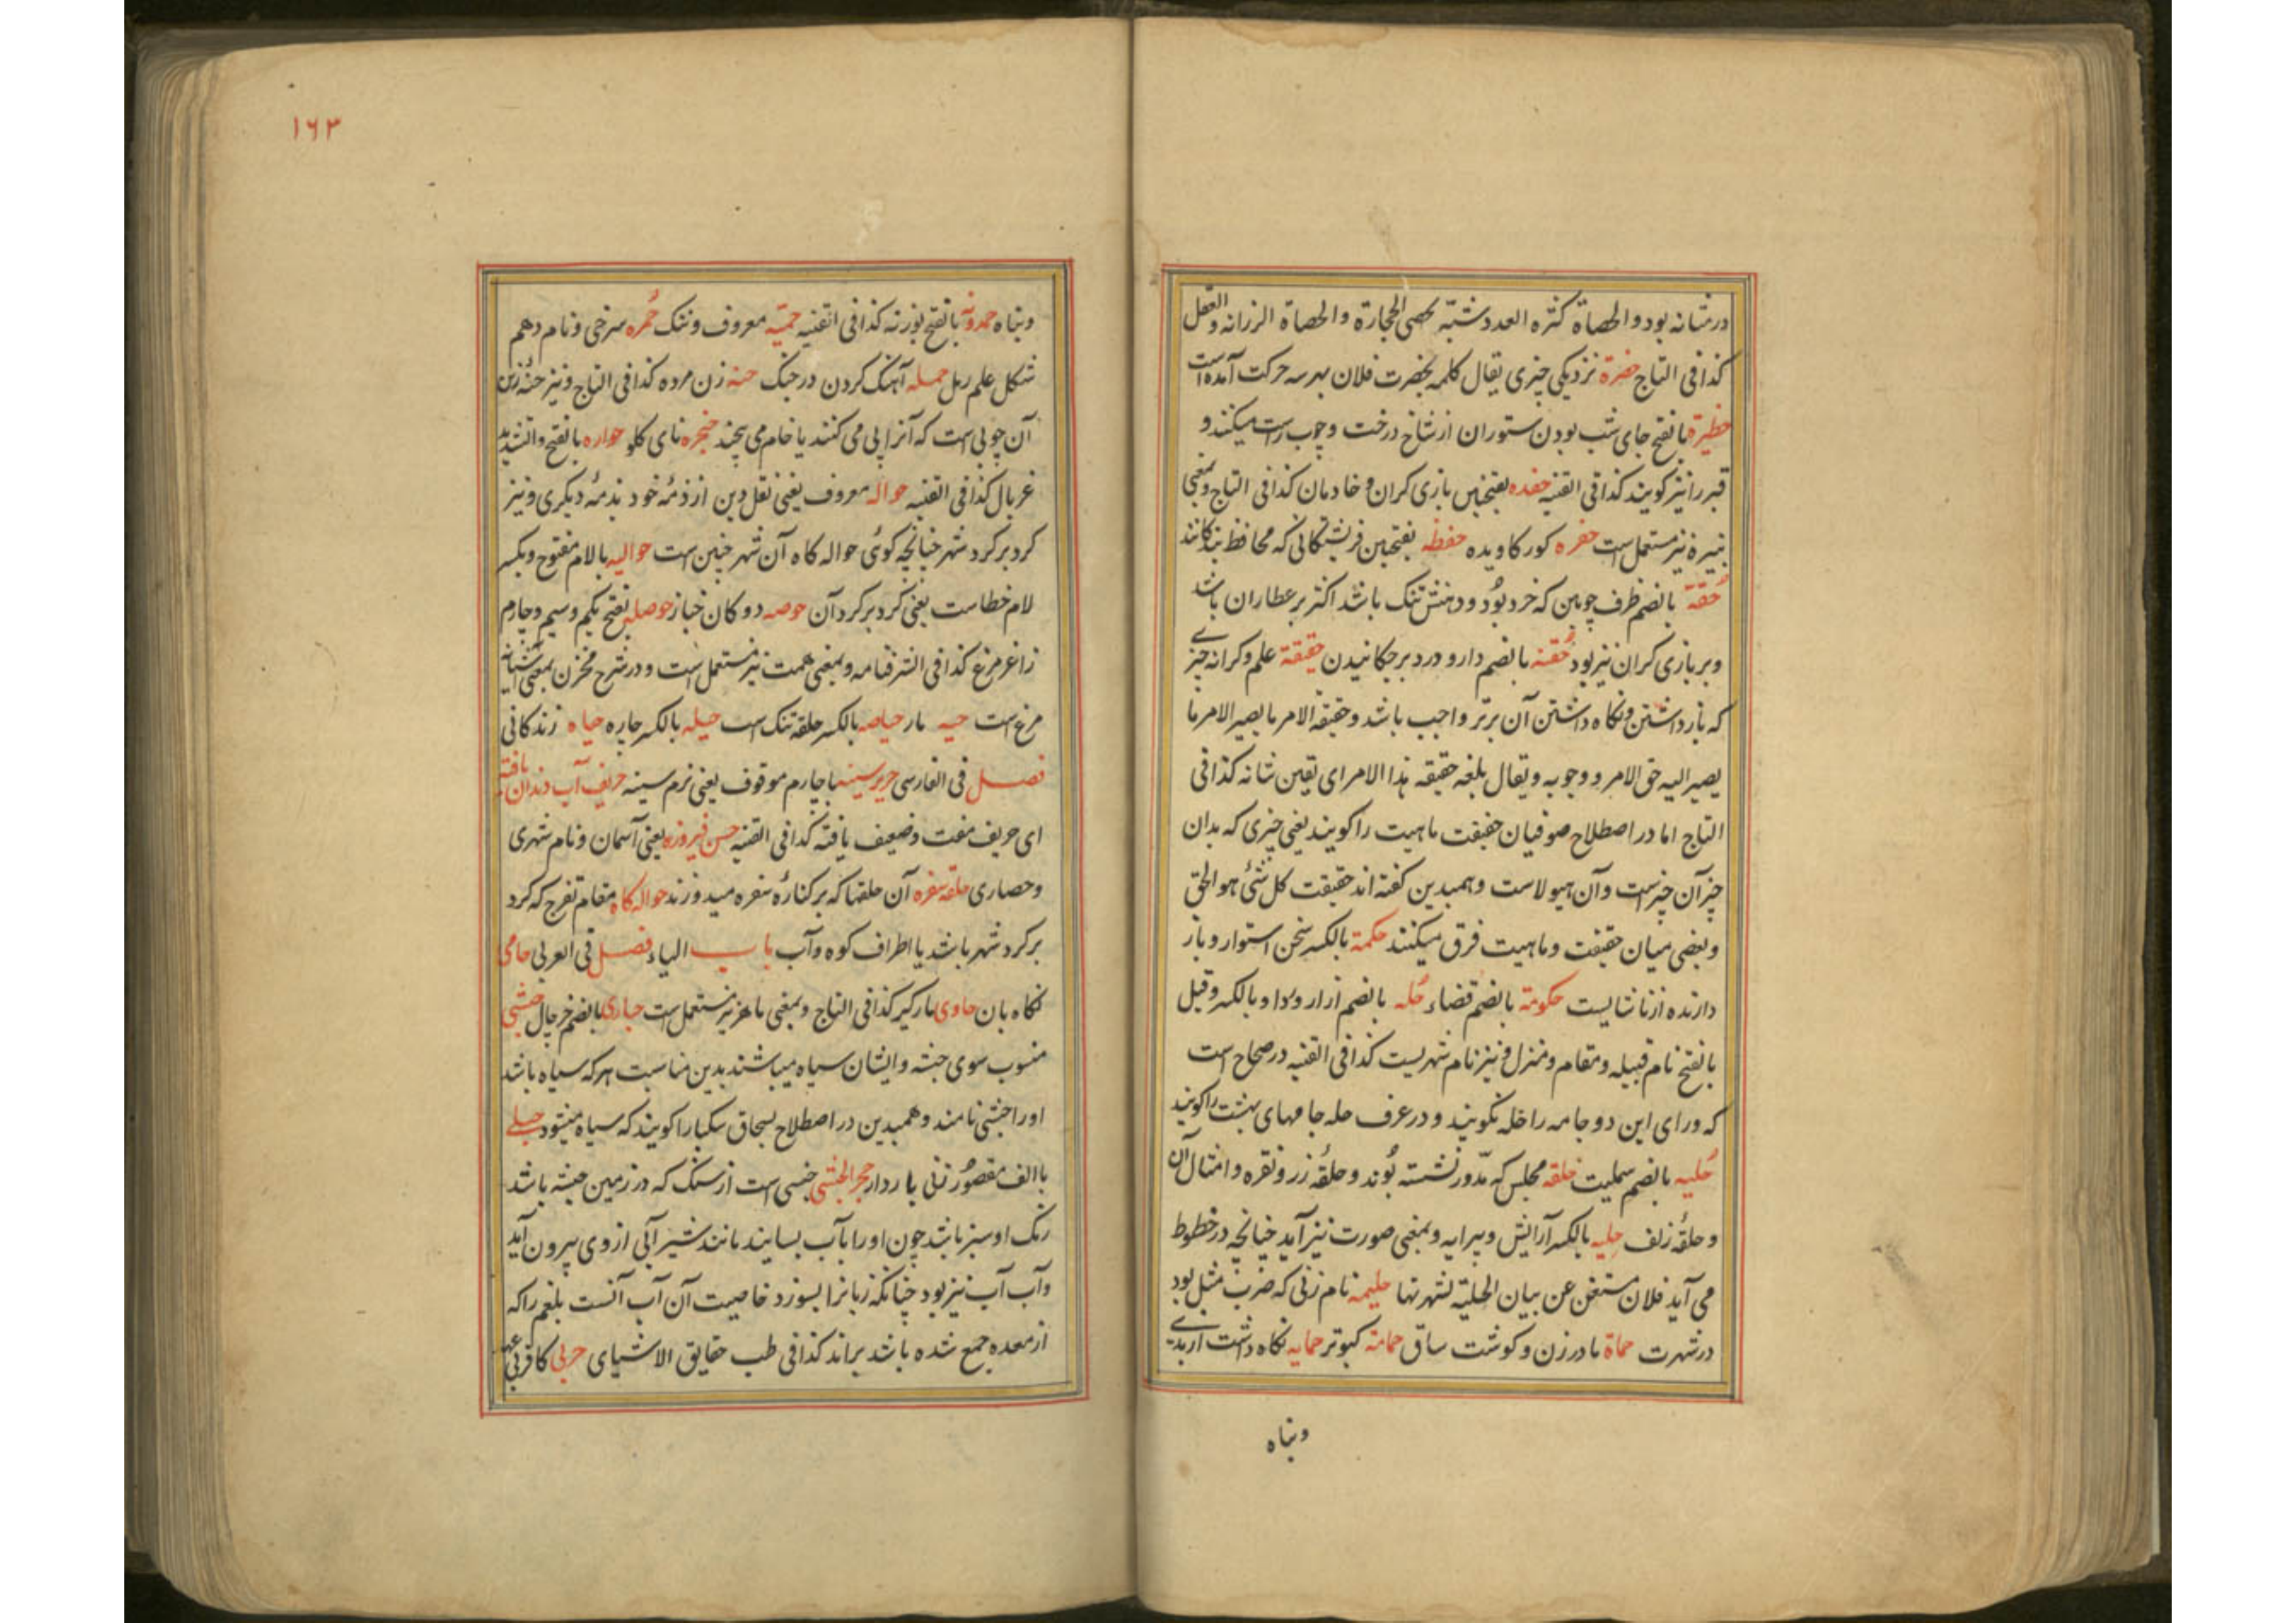 در مثانه بود والحصاة کثره العدد شبّه بحصی الحجارة والحصاة الرزانه والعقل
کذا فی التاج حضرة نزدیکی چیزی یقال کلمه بحضرت فلان بهر سه حرکت آمده است
حظیرة بالفتح جای شب بودن ستوران از شاخ درخت وچوب راست میکنند و
قبر را نیز کویند کذا فی القنیه حفده بفتحتین بازی کران و خادمان کذا فی التاج وبمعنی
نبیره نیز مستعمل است حفره کور کاویده حفظه بفتحتین فرشتکانی که محافظ بندکانند
حُقة بالضم ظرف چوبین که خرد بُود و دهنش تنک باشد اکثر بر عطاران باشد
وبر بازی کران نیز بود حُقنه بالضم دارو در دبر چکانیدن حقیقة علم وکرانه چیزے
که باز داشتن ونکاه داشتن آن برتر واجب باشد وحقیقه الامر ما یصیر الامر ما
یصیر الیه حق الامر و وجوبه ویقال بلغه حقیقه هذا الامر ای یقین شانه کذا فی
التاج اما در اصطلاح صوفیان حقیقت ماهیت را کویند یعنی چیزی که بدان
چیز آن چیز است وآن هیولاست وهمبدین کفته اند حقیقت کل شئ هو الحق
وبعضی میان حقیقت وماهیت فرق میکنند حکمة بالکسر سخن استوار وباز
دارنده از ناشایست حکومة بالضم قضاء حُله بالضم ازار وردا وبالکسر وقیل
بالفتح نام قبیله ومقام ومنزل ونیز نام شهریست کذا فی القنیه در صحاح است
که ورای این دو جامه را حله نکویند ودر عرف حله جامهای بهشت را کویند
حُلیه بالضم حلقه مجلس که مدّور نشسته بُوند وحلقهٔ زر ونقره وامثال آن
وحلقهٔ زلف حِلیه بالکسر آرایش وپیرایه وبمعنی صورت نیز آمد چنانچه در خطوط
می آید فلان مستغن عن بیان الحلیة لشهرتها حلیمه نام زنی که ضرب مثل بود
در شهرت حماة مادر زن وکوشت ساق حمامة کبوتر حمایه نکاه داشت از بدے
وپناه
۱۶۳
وپناه حمدونه بالفتح بوزنه کذا فی القنیه حمیّه معروف وننک حُمره سرخی ونام دهم
شکل علم رمل حمله آهنک کردن در جنک حنه زن مرده کذا فی التاج ونیز حنّه زین
آن چوبی است که آنرا پی می کنند یا خام می پیچند حنجره نای کلو حواره بالفتح والتشدید
غربال کذا فی القنیه حواله معروف یعنی نقل دین از ذمّهٔ خود بذمّهٔ دیکری ونیز
کرد بر کرد شهر چنانچه کوئی حواله کاه آن شهر چنین است حوالیه بالام مفتوح وبکسر
لام خطاست یعنی کرد بر کرد آن حوصه دوکان خباز حوصله بفتح یکم وسیم وچارم
زاغر مرغ کذا فی الشرفنامه وبمعنی همت نیز مستعمل است ودر شرح مخزن بمعنی آشیانه
مرغ است حیه مار حیاصه بالکسر حلقه تنک است حیله بالکسر چاره حیاه زندکانی
فصل فی الفارسی حریر سینه با چارم موقوف یعنی نرم سینه حریف آب دندان یافته
ای حریف مفت وضعیف یافته کذا فی القنیه حسن فیروزه یعنی آسمان ونام شهری
وحصاری حلقه سفره آن حلقها که بر کنارهٔ سفره میدوزند حواله کاه مقام تفرج که کرد
بر کرد شهر باشد یا اطراف کوه وآب باب الیاء فصل فی العربی حامی
نکاه بان حاوی مارکیر کذا فی التاج وبمعنی ماهر نیز مستعمل است حباری بالضم خرچال حبشی
منسوب سوی حبشه وایشان سیاه میباشند بدین مناسبت هر که سیاه باشد
اورا حبشی نامند وهمبدین در اصطلاح بسحاق سکبا را کویند که سیاه میشود حبلے
باالف مقصُور زنی باردار حجر الحبشی جنسی است از سنک که در زمین حبشه باشد
رنک او سبز باشد چون او را بآب بسایند مانند شیر آبی از وی بیرون آید
وآب آب تیز بود چنانکه زبانرا بسوزد خاصیت آن آب آنست بلغم را که
از معده جمع شده باشد براند کذا فی طب حقایق الاشیای حربی کافر